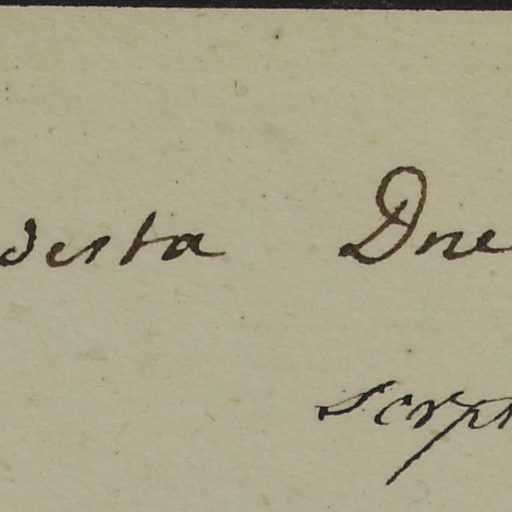 desta Dne
scrps